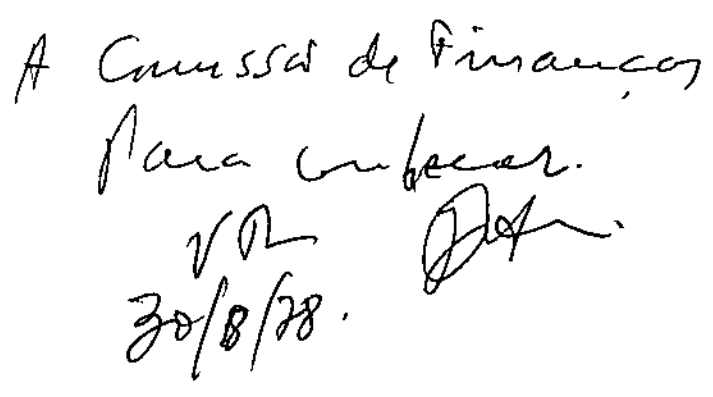 A Comissão de Finanças
Para conhecer.
VR
30/8/78.